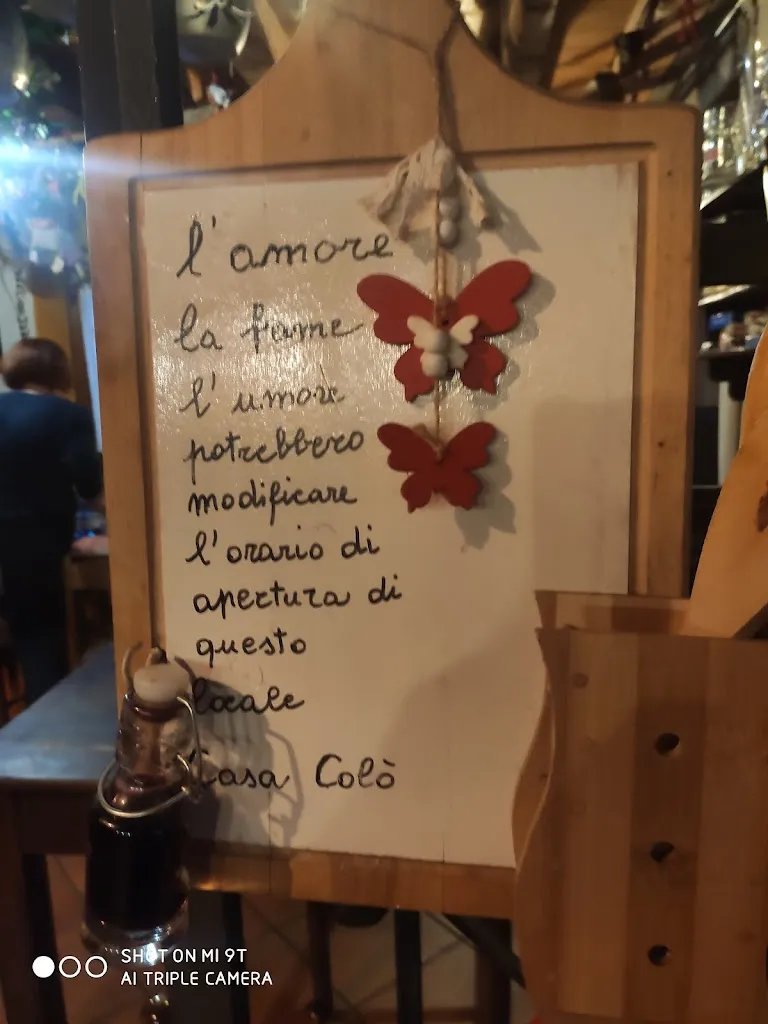 l'amore
la fame
l'umore
potrebbero
modificare
l'orario di
apertura di
questo
locale
Casa Colò
SHOT ON MI 9T
AI TRIPLE CAMERA